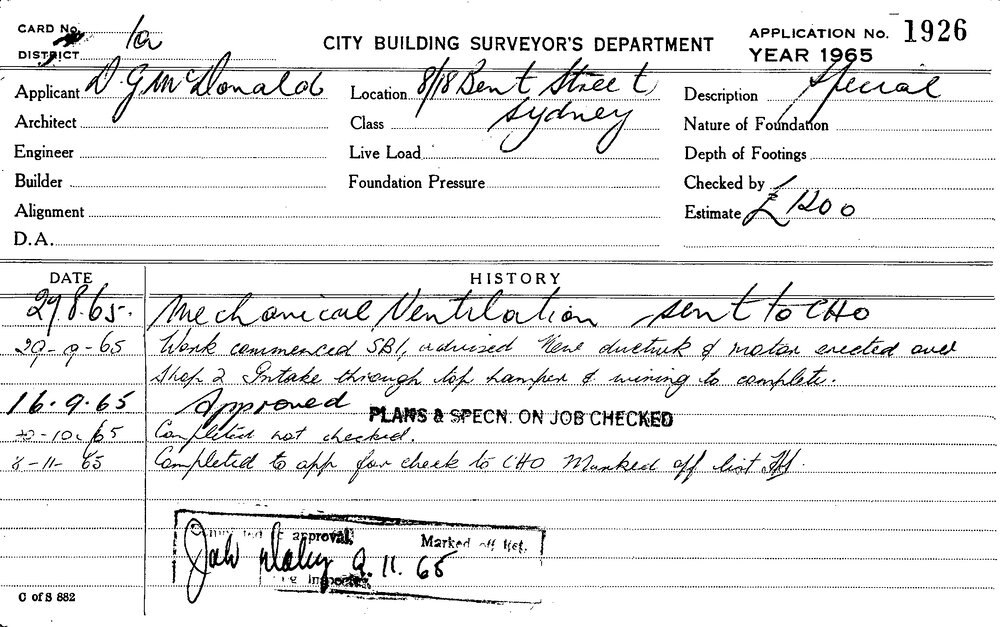 CARD No. 1a
DISTRICT
CITY BUILDING SURVEYOR'S DEPARTMENT
APPLICATION No. 1926
YEAR 1965
Applicant D. G McDonald
Location 8/18 Bent Street,
Sydney
Description Special
Architect
Class
Nature of Foundation
Engineer
Live Load
Depth of Footings
Builder
Foundation Pressure
Checked by
Alignment
Estimate £1200
D.A.
DATE HISTORY
27.8.65. Mechanical Ventilation sent to CHO
29-9-65 Work commenced SB1, advised New ductwk & motor erected over
Shop 2 Intake through top hamper & wiring to complete.
16.9.65 Approved PLANS & SPECN. ON JOB CHECKED
-10-65 Completed not checked.
8-11-65 Completed to app for check to CHO Marked off list
approval. Marked off list.
9.11.65
C of S 882